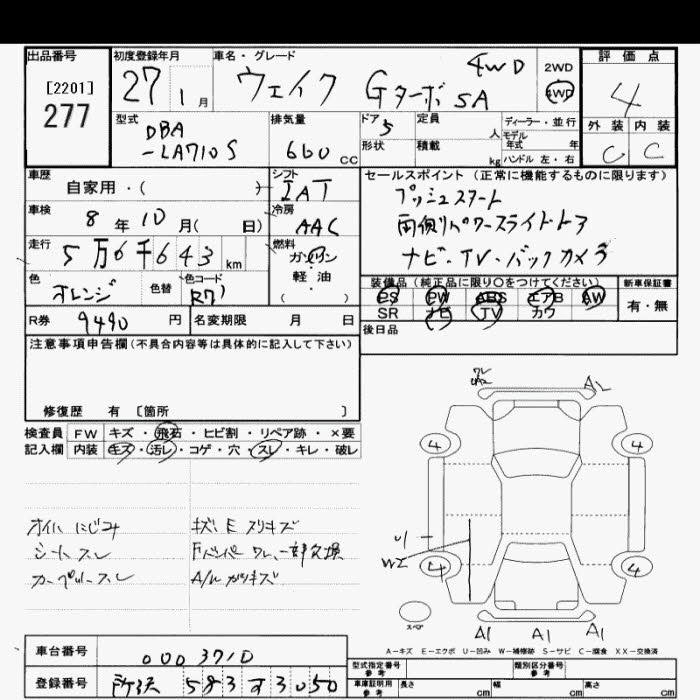 出品番号
[2201]
277
初度登録年月
27 1月
車名・グレード
ウェイク Gターボ SA 4WD
2WD
4WD
評価点
4
外装 内装
C C
型式
DBA
-LA710S
排気量
660 cc
ドア 5
形状
定員 人
積載 kg
ディーラー・並行
モデル
年式 年
ハンドル 左・右
車歴
自家用・( )
シフト
IAT
車検
8年10月( 日)
冷房
AAC
走行
5万6千643km
燃料
ガソリン
軽・油
( )
色
オレンジ
色替
色コード
R71
R券 9490円
名変期限 月 日
セールスポイント (正常に機能するものに限ります)
プッシュスタート
両側パワースライドドア
ナビ・TV・バックカメラ
装備品 (純正品に限り○をつけてください)
新車保証書
PS PW ABS エアB AW
SR ナビ TV カワ
有・無
後日品
注意事項申告欄(不具合内容等は具体的に記入して下さい)
修復歴 有 〔箇所 〕
検査員
記入欄
FW キズ・飛石・ヒビ割・リペア跡・×要
内装 キズ・汚レ・コゲ・穴・スレ・キレ・破レ
オイルにじみ
シートスレ
キズ、E スリキズ
Fバンパー ワレ、一部欠損
A/W ガリキズ
ワレ
A2
4
4
U1
W2
4
4
スペア
A1 A1 A1
A-キズ E-エクボ U-凹み W-補修跡 S-サビ C-腐食 XX-交換済
車台番号
0003710
登録番号
所沢 583 す 3050
型式指定番号
参考
類別区分番号
参考
車庫証明用
参考
長さ cm
幅 cm
高さ cm